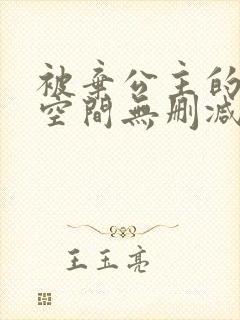 被棄公主的
空間無刪減
王玉亮